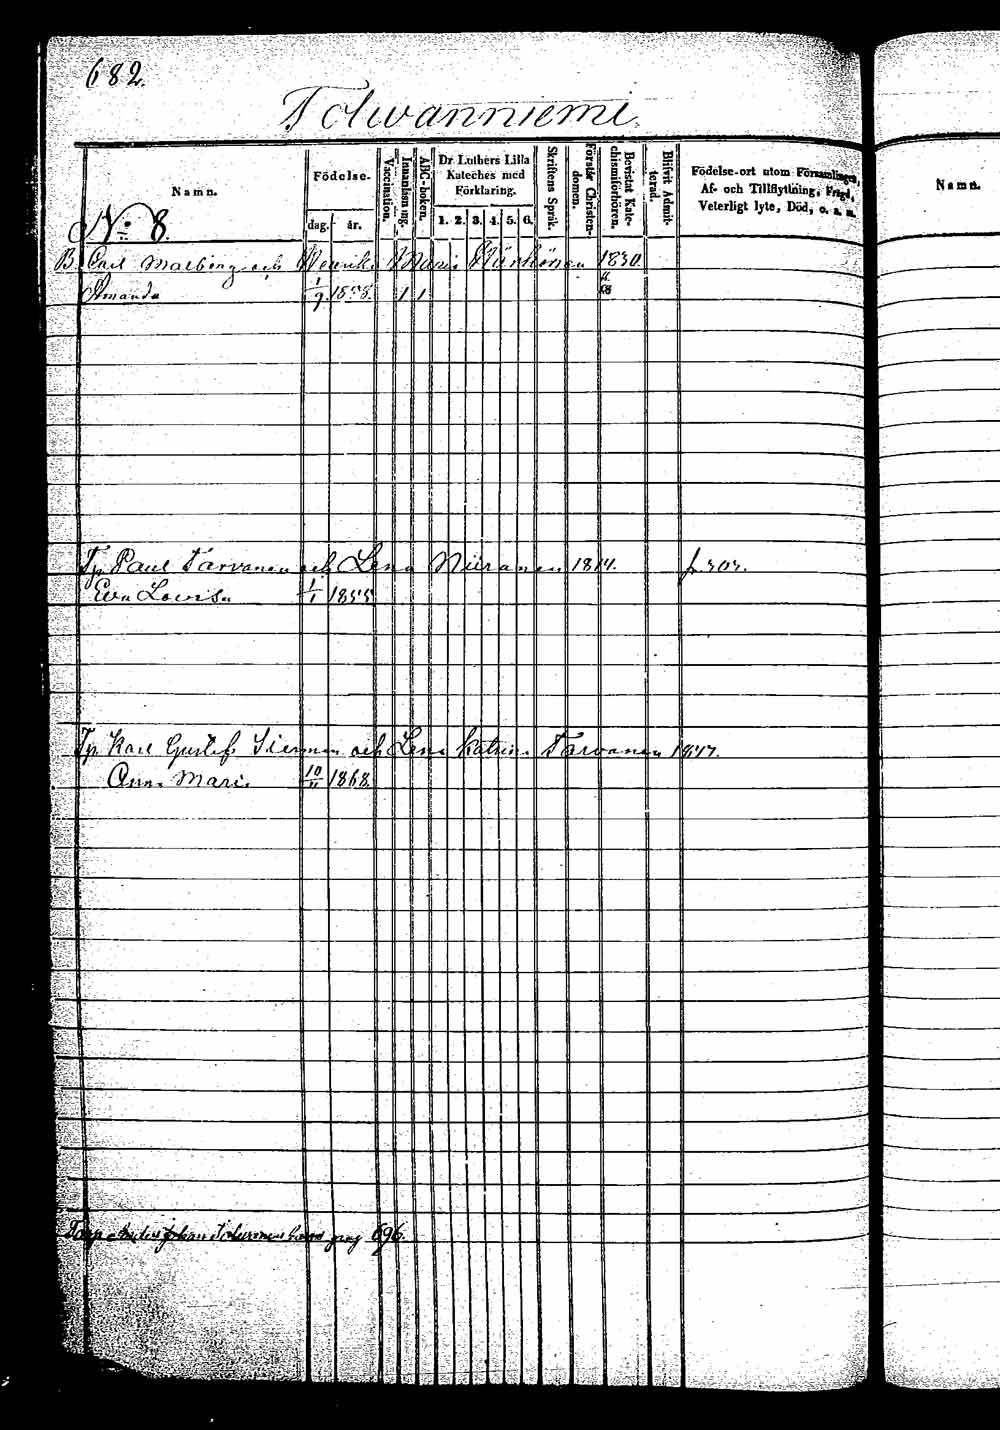 682.
Tolwanniemi.
Namn.
Födelse-
dag.
år.
Vaccination.
Innanläsning.
ABC-boken.
Dr Luthers Lilla
Kateches med
Förklaring.
1. 2. 3. 4. 5. 6.
Skriftens Språk.
Förstår Christen-
domen.
Bevistat Kate-
chismiförhören.
Blifvit Admit-
terad.
Födelse-ort utom Församlingen,
Af- och Tillflyttning, Frägd,
Veterligt lyte, Död, o. s. v.
Namn.
No 8.
B. Carl Malberg och Henrika Maria 1830.
Amanda 1/9 1858. 1 1
Tp. Paul Tarvanen och Lena Niiranen 1814.
Eva Lovisa 1/1 1855
Tp. Karl Gustaf och Lena Katrina Tarvanen 1847.
Anna Maria 10/11 1868.
Johan pag 696.